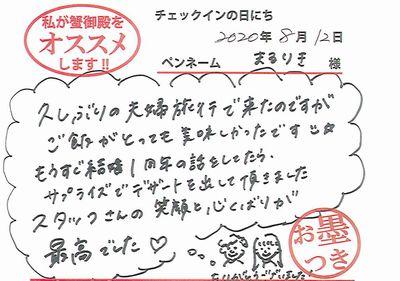 私が蟹御殿を
オススメ
します!!
チェックインの日にち
2020年8月12日
ペンネーム まるりき 様
久しぶりの夫婦旅行で来たのですが
ご飯がとっても美味しかったです
もうすぐ結婚1周年の話をしてたら、
サプライズでデザートを出して頂きました
スタッフさんの笑顔と心くばりが
最高でした♡
ありがとうございました!
お墨
つき